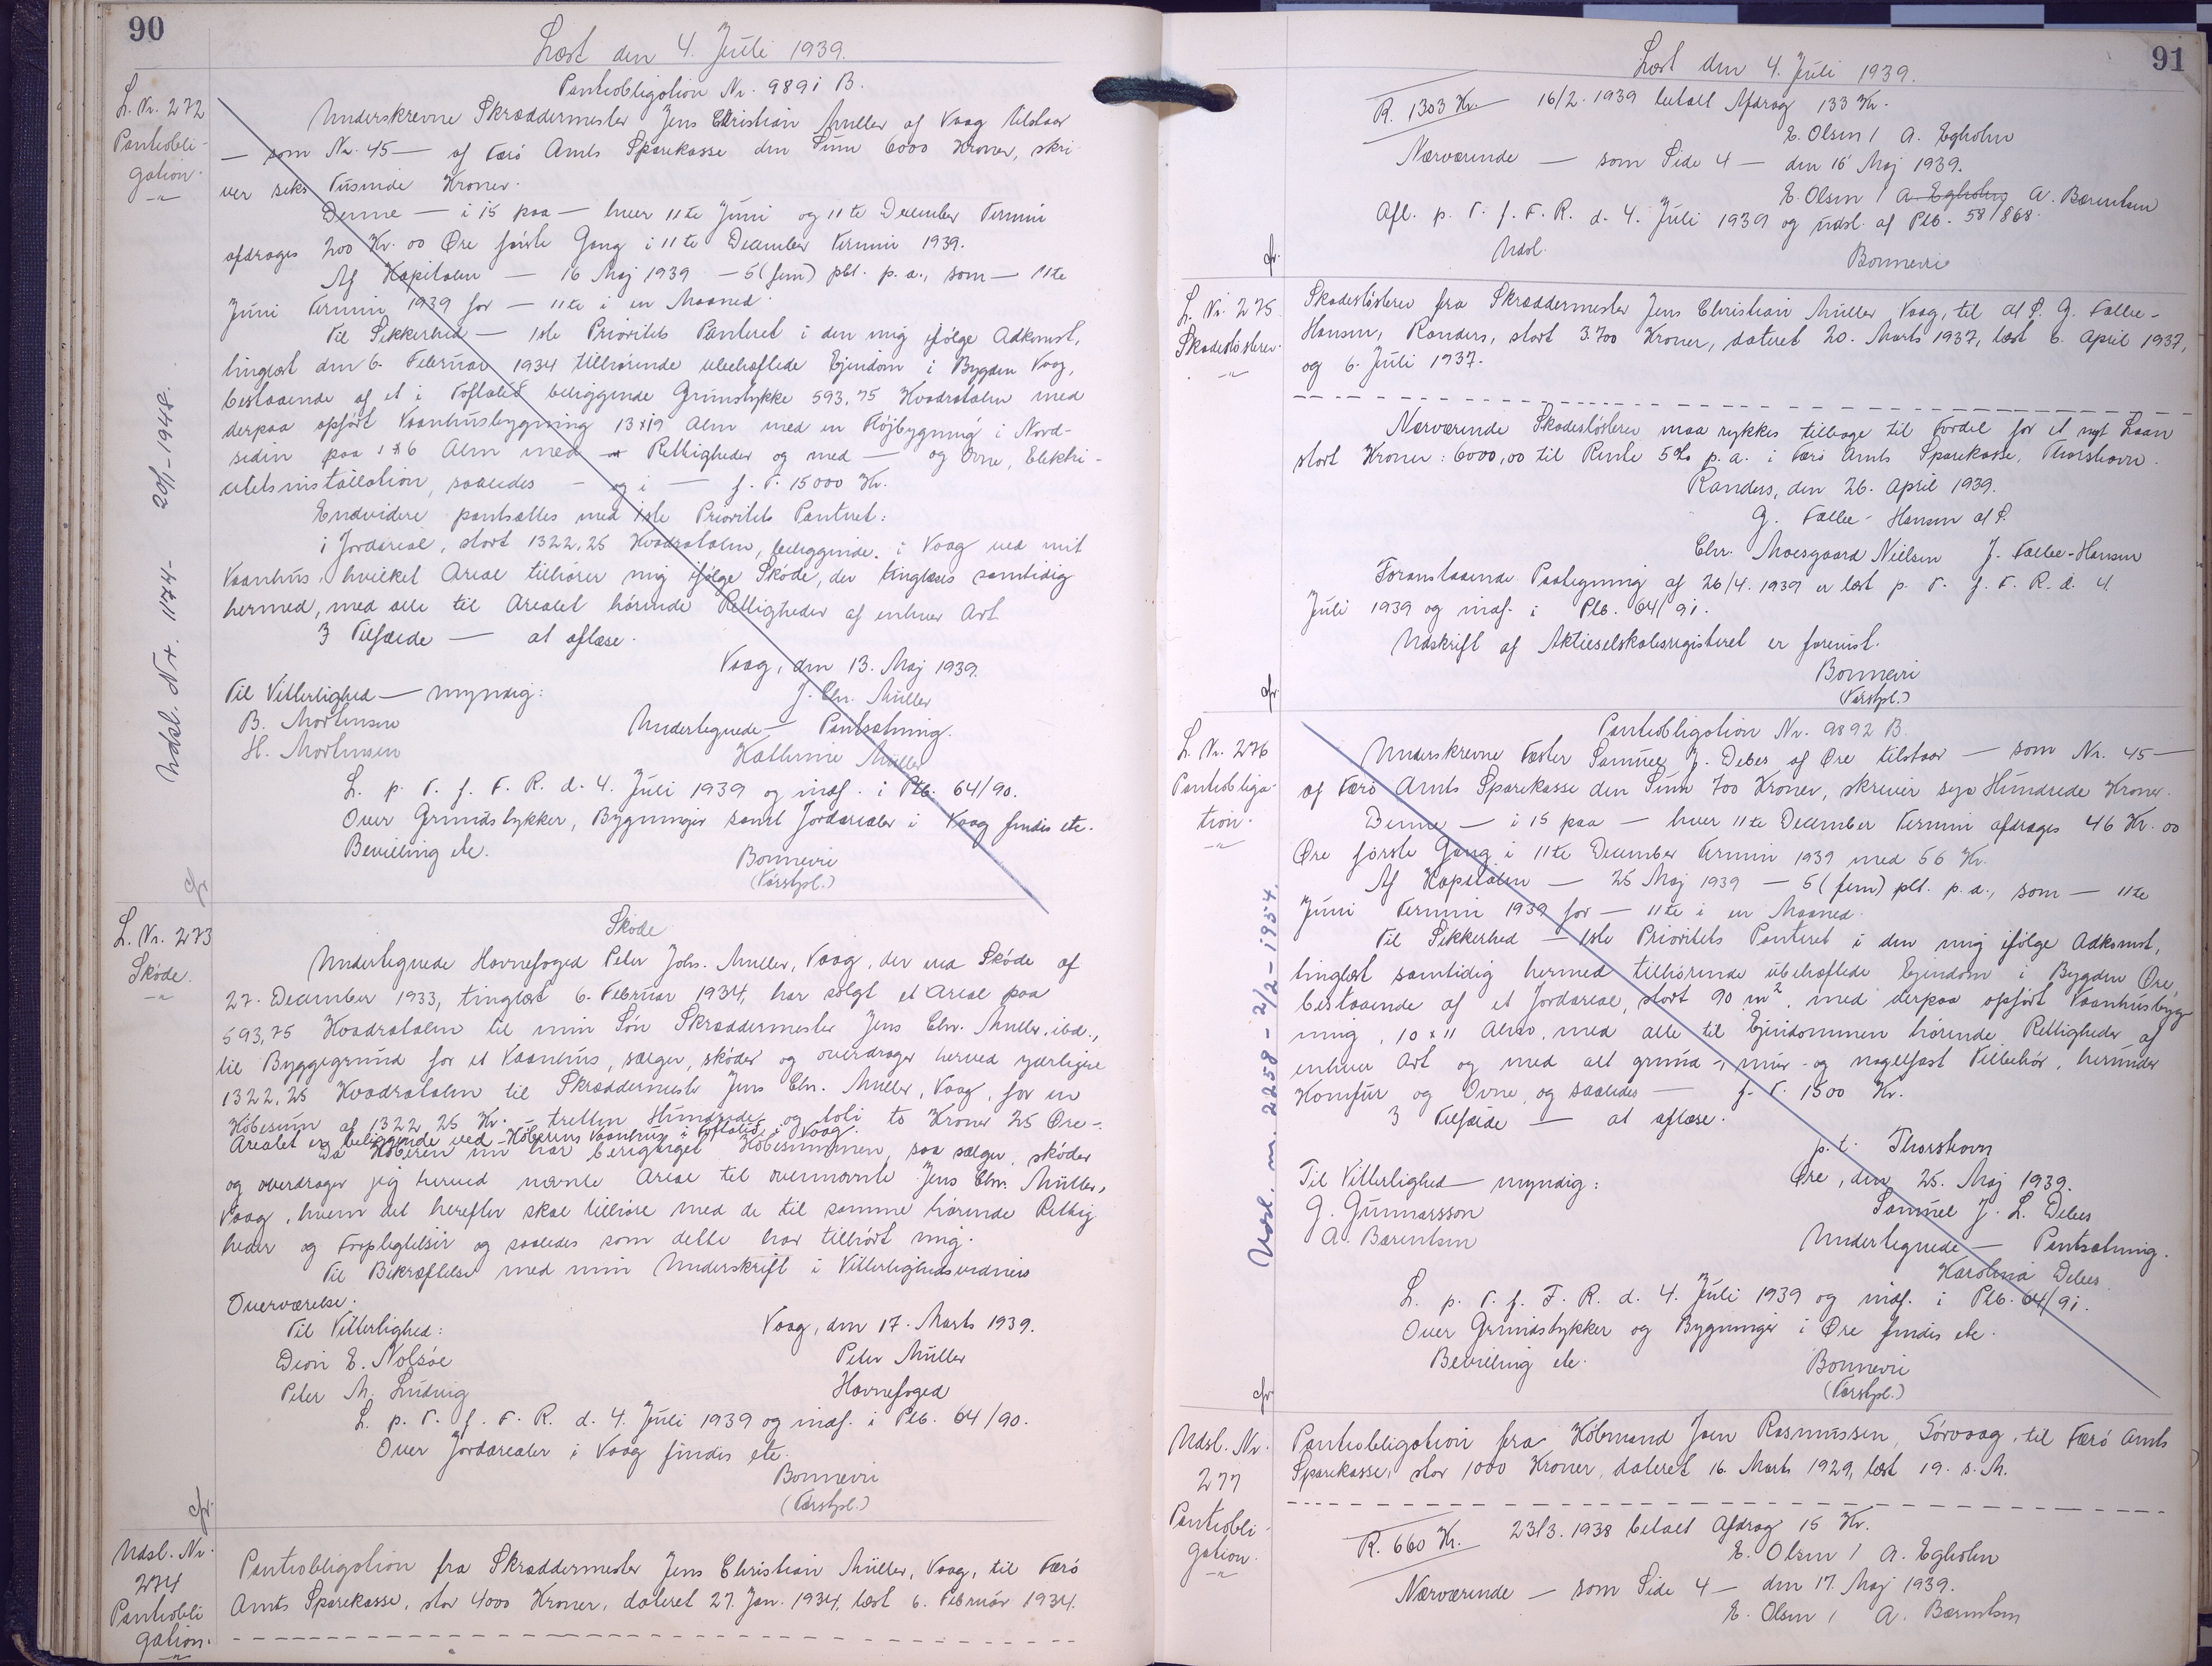 90
Læst den 4. Juli 1939.
L. Nr. 272
Pantobli-
gation.
Pantobligation Nr. 9891 B.
Underskrevne Skræddermester Jens Christian Müller af Vaag tilstaar
— som Nr. 45 — af Færö Amts Sparekasse den Sum 6000 Kroner, skri
ver seks Tusinde Kroner.
Denne — i 15 paa — hver 11te Juni og 11te December Termin
afdrages 200 Kr. 00 Øre første Gang i 11te December Termin 1939.
Af Kapitalen — 16 Maj 1939 — 5 (fem) pCt. p. a., som — 11te
Juni Termin 1939 for — 11te i en Maaned.
Til Sikkerhed — 1ste Prioritets Panteret i den mig ifølge Adkomst,
tinglæst den 6. Februar 1934 tilhørende ubehæftede Ejendom i Bygden Vaag,
bestaaende af et i Toftalið beliggende Grundstykke 593,75 Kvadratalen med
derpaa opført Vaanhusbygning 13x19 Alen med en Højbygning i Nord-
siden paa 1x6 Alen med — Rettigheder og med — og Ovne, Elektri-
citetsinstallation, saaledes — og i — f. T. 15000 Kr.
Endvidere pantsættes med 1ste Prioritets Panteret:
i Jordareal, stort 1322,25 Kvadratalen, beliggende i Vaag ved mit
Vaanhus, hvilket Areal tilhører mig ifølge Skøde, der tinglæses samtidig
hermed, med alle til Arealet hørende Rettigheder af enhver Art
3 Tilfælde — at aflæse.
Vaag, den 13. Maj 1939.
Til Vitterlighed — myndig:
J. Chr. Müller
B. Mortensen
Undertegnede — Pantsætning.
H. Mortensen
Kathrine Müller
L. p. T. f. F. R. d. 4. Juli 1939 og indf. i Ptb. 64/90.
Over Grundstykker, Bygninger samt Jordarealer i Vaag findes etc.
Bevilling etc.
Bonnevie
(Værstpl.)
cfr.
Udsl. Nr. 1174 - 20/1-1948.
L. Nr. 273
Skøde.
Skøde
Undertegnede Havnefoged Peter Johs. Müller, Vaag, der ved Skøde af
27. December 1933, tinglæst 6. Februar 1934, har solgt et Areal paa
593,75 Kvadratalen til min Søn Skræddermester Jens Chr. Müller, ibd.,
til Byggegrund for et Vaanhus, sælger, skøder og overdrager herved yderligere
1322,25 Kvadratalen til Skræddermester Jens Chr. Müller, Vaag, for en
Købesum af 1322 25 Kr. - tretten Hundrede og toti to Kroner 25 Øre -.
Arealet er beliggende ved Køberens Vaanhus i Toftalið i Vaag.
Da Køberen nu har berigtiget Købesummen, saa sælger, skøder
og overdrager jeg herved nævnte Areal til ovennævnte Jens Chr. Müller,
Vaag, hvem det herefter skal tilhøre med de til samme hørende Rettig
heder og Forpligtelser og saaledes som dette har tilhørt mig.
Til Bekræftelse med min Underskrift i Vitterlighedsvidners
Overværelse.
Til Vitterlighed:
Vaag, den 17. Marts 1939.
Dion E. Nolsøe
Peter Müller
Peter M. Ludvig
Havnefoged
L. p. T. f. F. R. d. 4. Juli 1939 og indf. i Ptb. 64/90.
Over Jordarealer i Vaag findes etc.
Bonnevie
(Værstpl.)
cfr.
Udsl. Nr.
274
Pantobli
gation.
Pantobligation fra Skræddermester Jens Christian Müller, Vaag, til Færö
Amts Sparekasse, stor 4000 Kroner, dateret 27. Jan. 1934, læst 6. Februar 1934.
91
Læst den 4. Juli 1939.
R. 1303 Kr. 16/2. 1939 betalt Afdrag 133 Kr.
E. Olsen / A. Egholm
Nærværende — som Side 4 — den 16 Maj 1939.
E. Olsen / A. Egholm A. Bærentsen
Afl. p. T. f. F. R. d. 4. Juli 1939 og udsl. af Ptb. 58/868.
Udsl.
Bonnevie
cfr.
L. Nr. 275
Skadesløsbrev.
Skadesløsbrev fra Skræddermester Jens Christian Müller, Vaag, til A/S. G. Falbe-
Hansen, Randers, stort 3.700 Kroner, dateret 20. Marts 1937, læst 6. April 1937,
og 6. Juli 1937.
Nærværende Skadesløsbrev maa rykkes tilbage til Fordel for et nyt Laan
stort Kroner: 6000,00 til Rente 5% p. a. i Færö Amts Sparekasse, Thorshavn.
Randers, den 26. April 1939.
G. Falbe-Hansen A/S.
Chr. Moesgaard Nielsen J. Falbe-Hansen
Foranstaaende Paategning af 26/4. 1939 er læst p. T. f. F. R. d. 4.
Juli 1939 og indf. i Ptb. 64/91.
Udskrift af Aktieselskabsregisteret er forevist.
Bonnevie
(Værstpl.)
cfr.
L. Nr. 276
Pantobliga-
tion.
Pantobligation Nr. 9892 B.
Underskrevne Fæster Samuel J. Debes af Øre tilstaar — som Nr. 45 —
af Færö Amts Sparekasse den Sum 700 Kroner, skriver syv Hundrede Kroner.
Denne — i 15 paa — hver 11te December Termin afdrages 46 Kr. 00
Øre første Gang i 11te December Termin 1939 med 56 Kr.
Af Kapitalen — 25 Maj 1939 — 5 (fem) pCt. p. a., som — 11te
Juni Termin 1939 for — 11te i en Maaned.
Til Sikkerhed — 1ste Prioritets Panteret i den mig ifølge Adkomst,
tinglæst samtidig hermed tilhørende ubehæftede Ejendom i Bygden Øre,
bestaaende af et Jordareal, stort 90 m², med derpaa opført Vaanhusbyg
ning, 10 x 11 Alen, med alle til Ejendommen hørende Rettigheder af
enhver Art og med alt grund-, mur- og nagelfast Tilbehør, herunder
Komfur og Ovne, og saaledes — f. T. 1500 Kr.
3 Tilfælde — at aflæse.
p. t. Thorshavn
Til Vitterlighed — myndig:
Øre, den 25. Maj 1939.
G. Gunnarsson
Samuel J. L. Debes
A. Bærentsen
Undertegnede — Pantsætning.
Karolina Debes
L. p. T. f. F. R. d. 4. Juli 1939 og indf. i Ptb. 64/91.
Over Grundstykker og Bygninger i Øre findes etc.
Bevilling etc.
Bonnevie
(Værstpl.)
cfr.
Udsl. nr. 2258 - 2/2 - 1954.
Udsl. Nr.
277
Pantobli-
gation.
Pantobligation fra Købmand Joen Rasmussen, Sörvaag, til Færö Amts
Sparekasse, stor 1000 Kroner, dateret 16. Marts 1929, læst 19. s. M.
R. 660 Kr. 23/3. 1938 betalt Afdrag 15 Kr.
E. Olsen / A. Egholm
Nærværende — som Side 4 — den 17. Maj 1939.
E. Olsen / A. Bærentsen